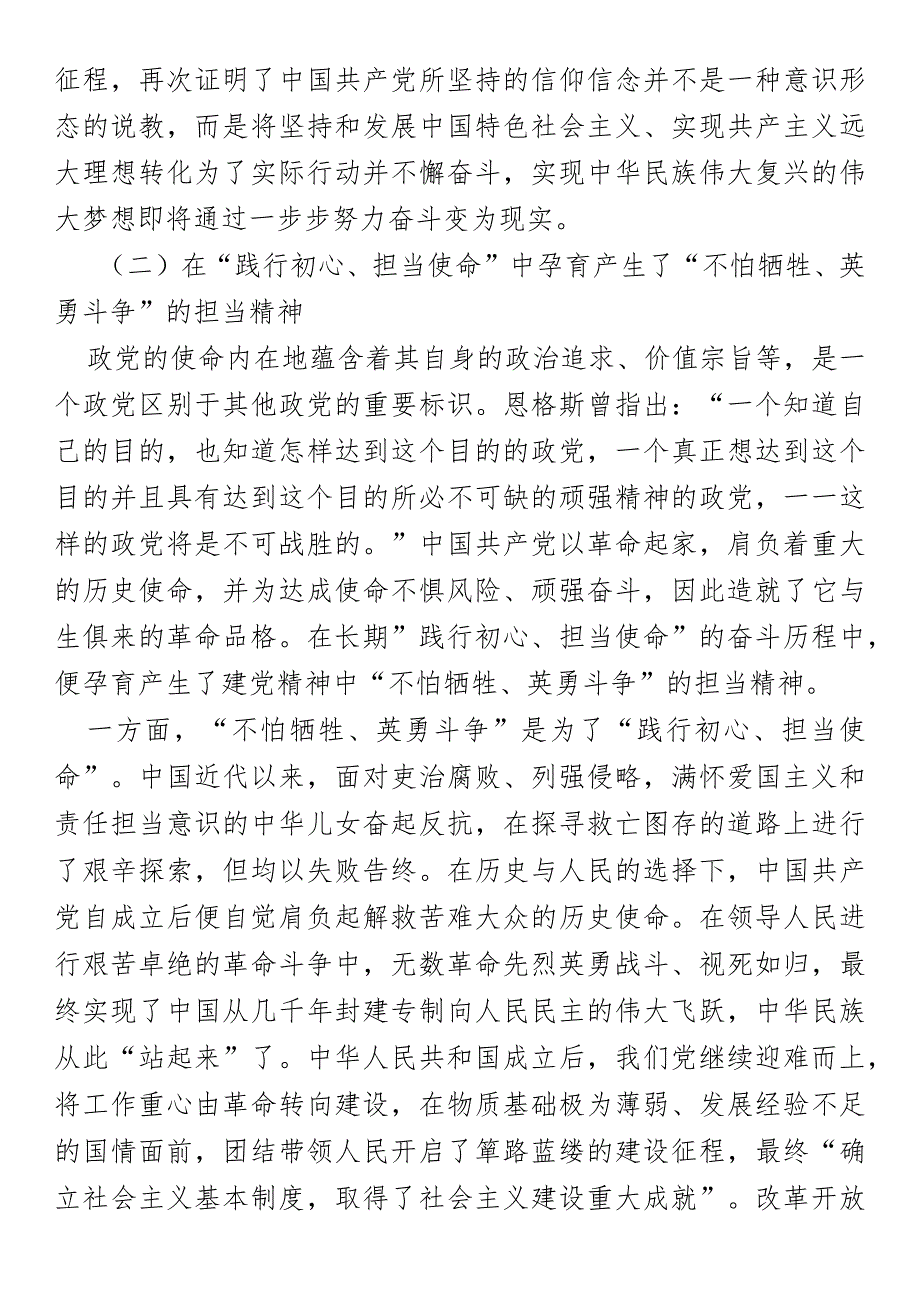 征程，再次证明了中国共产党所坚持的信仰信念并不是一种意识形
态的说教，而是将坚持和发展中国特色社会主义、实现共产主义远
大理想转化为了实际行动并不懈奋斗，实现中华民族伟大复兴的伟
大梦想即将通过一步步努力奋斗变为现实。
（二）在“践行初心、担当使命”中孕育产生了“不怕牺牲、英
勇斗争”的担当精神
政党的使命内在地蕴含着其自身的政治追求、价值宗旨等，是一
个政党区别于其他政党的重要标识。恩格斯曾指出：“一个知道自
己的目的，也知道怎样达到这个目的的政党，一个真正想达到这个
目的并且具有达到这个目的所必不可缺的顽强精神的政党，一一这
样的政党将是不可战胜的。”中国共产党以革命起家，肩负着重大
的历史使命，并为达成使命不惧风险、顽强奋斗，因此造就了它与
生俱来的革命品格。在长期”践行初心、担当使命”的奋斗历程中，
便孕育产生了建党精神中“不怕牺牲、英勇斗争”的担当精神。
一方面，“不怕牺牲、英勇斗争”是为了“践行初心、担当使
命”。中国近代以来，面对吏治腐败、列强侵略，满怀爱国主义和
责任担当意识的中华儿女奋起反抗，在探寻救亡图存的道路上进行
了艰辛探索，但均以失败告终。在历史与人民的选择下，中国共产
党自成立后便自觉肩负起解救苦难大众的历史使命。在领导人民进
行艰苦卓绝的革命斗争中，无数革命先烈英勇战斗、视死如归，最
终实现了中国从几千年封建专制向人民民主的伟大飞跃，中华民族
从此“站起来”了。中华人民共和国成立后，我们党继续迎难而上，
将工作重心由革命转向建设，在物质基础极为薄弱、发展经验不足
的国情面前，团结带领人民开启了筚路蓝缕的建设征程，最终“确
立社会主义基本制度，取得了社会主义建设重大成就”。改革开放